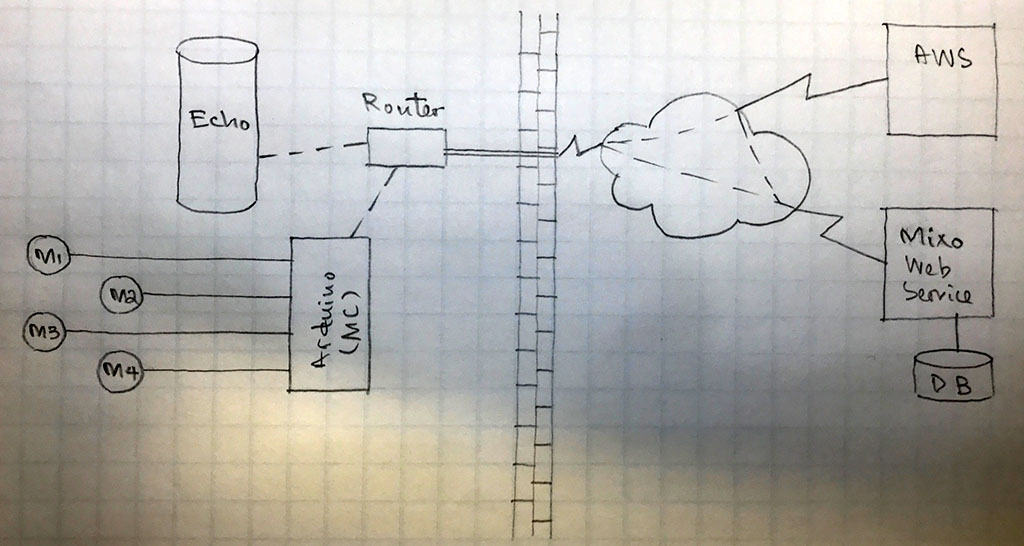 Echo
Router
AWS
M1
M2
M3
M4
Arduino
(MC)
Mixo
Web
Service
DB